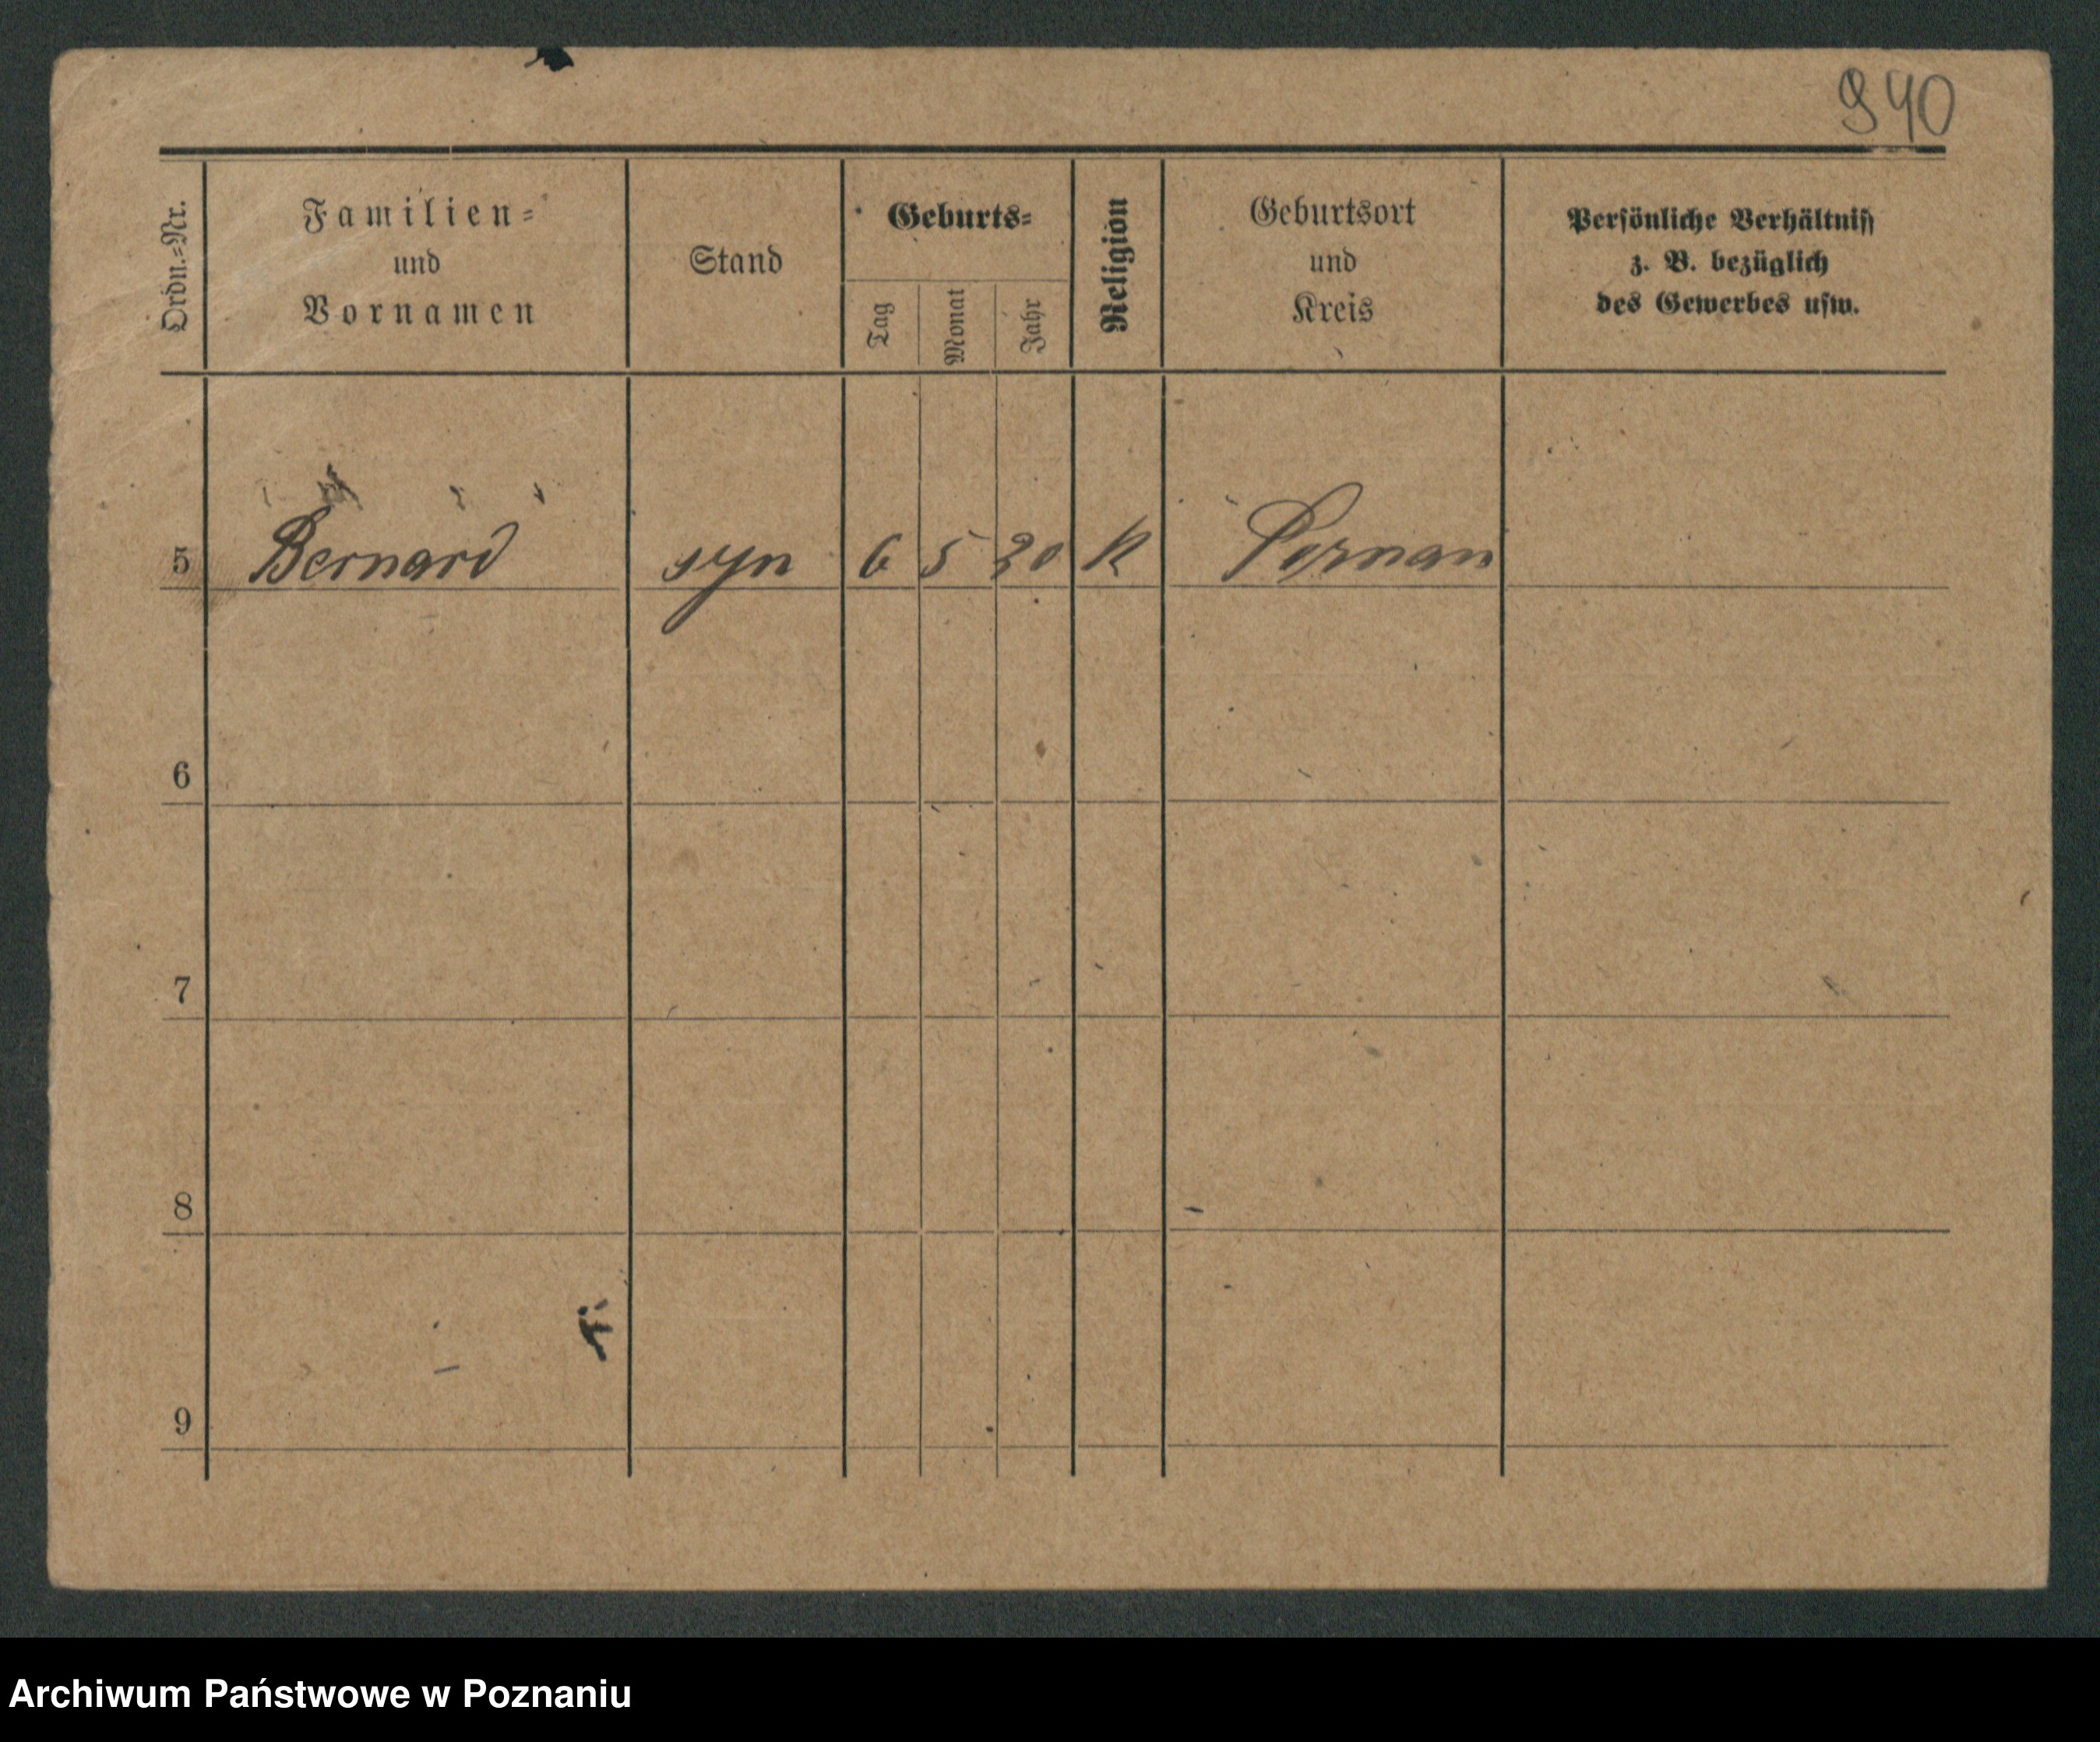 940
Ordn.-Nr.
Familien-
und
Vornamen
Stand
Geburts-
Tag
Monat
Jahr
Religion
Geburtsort
und
Kreis
Persönliche Verhältniss
z. B. bezüglich
des Gewerbes usw.
5 Bernard syn 6 5 20 K Poznan
6
7
8
9
Archiwum Państwowe w Poznaniu